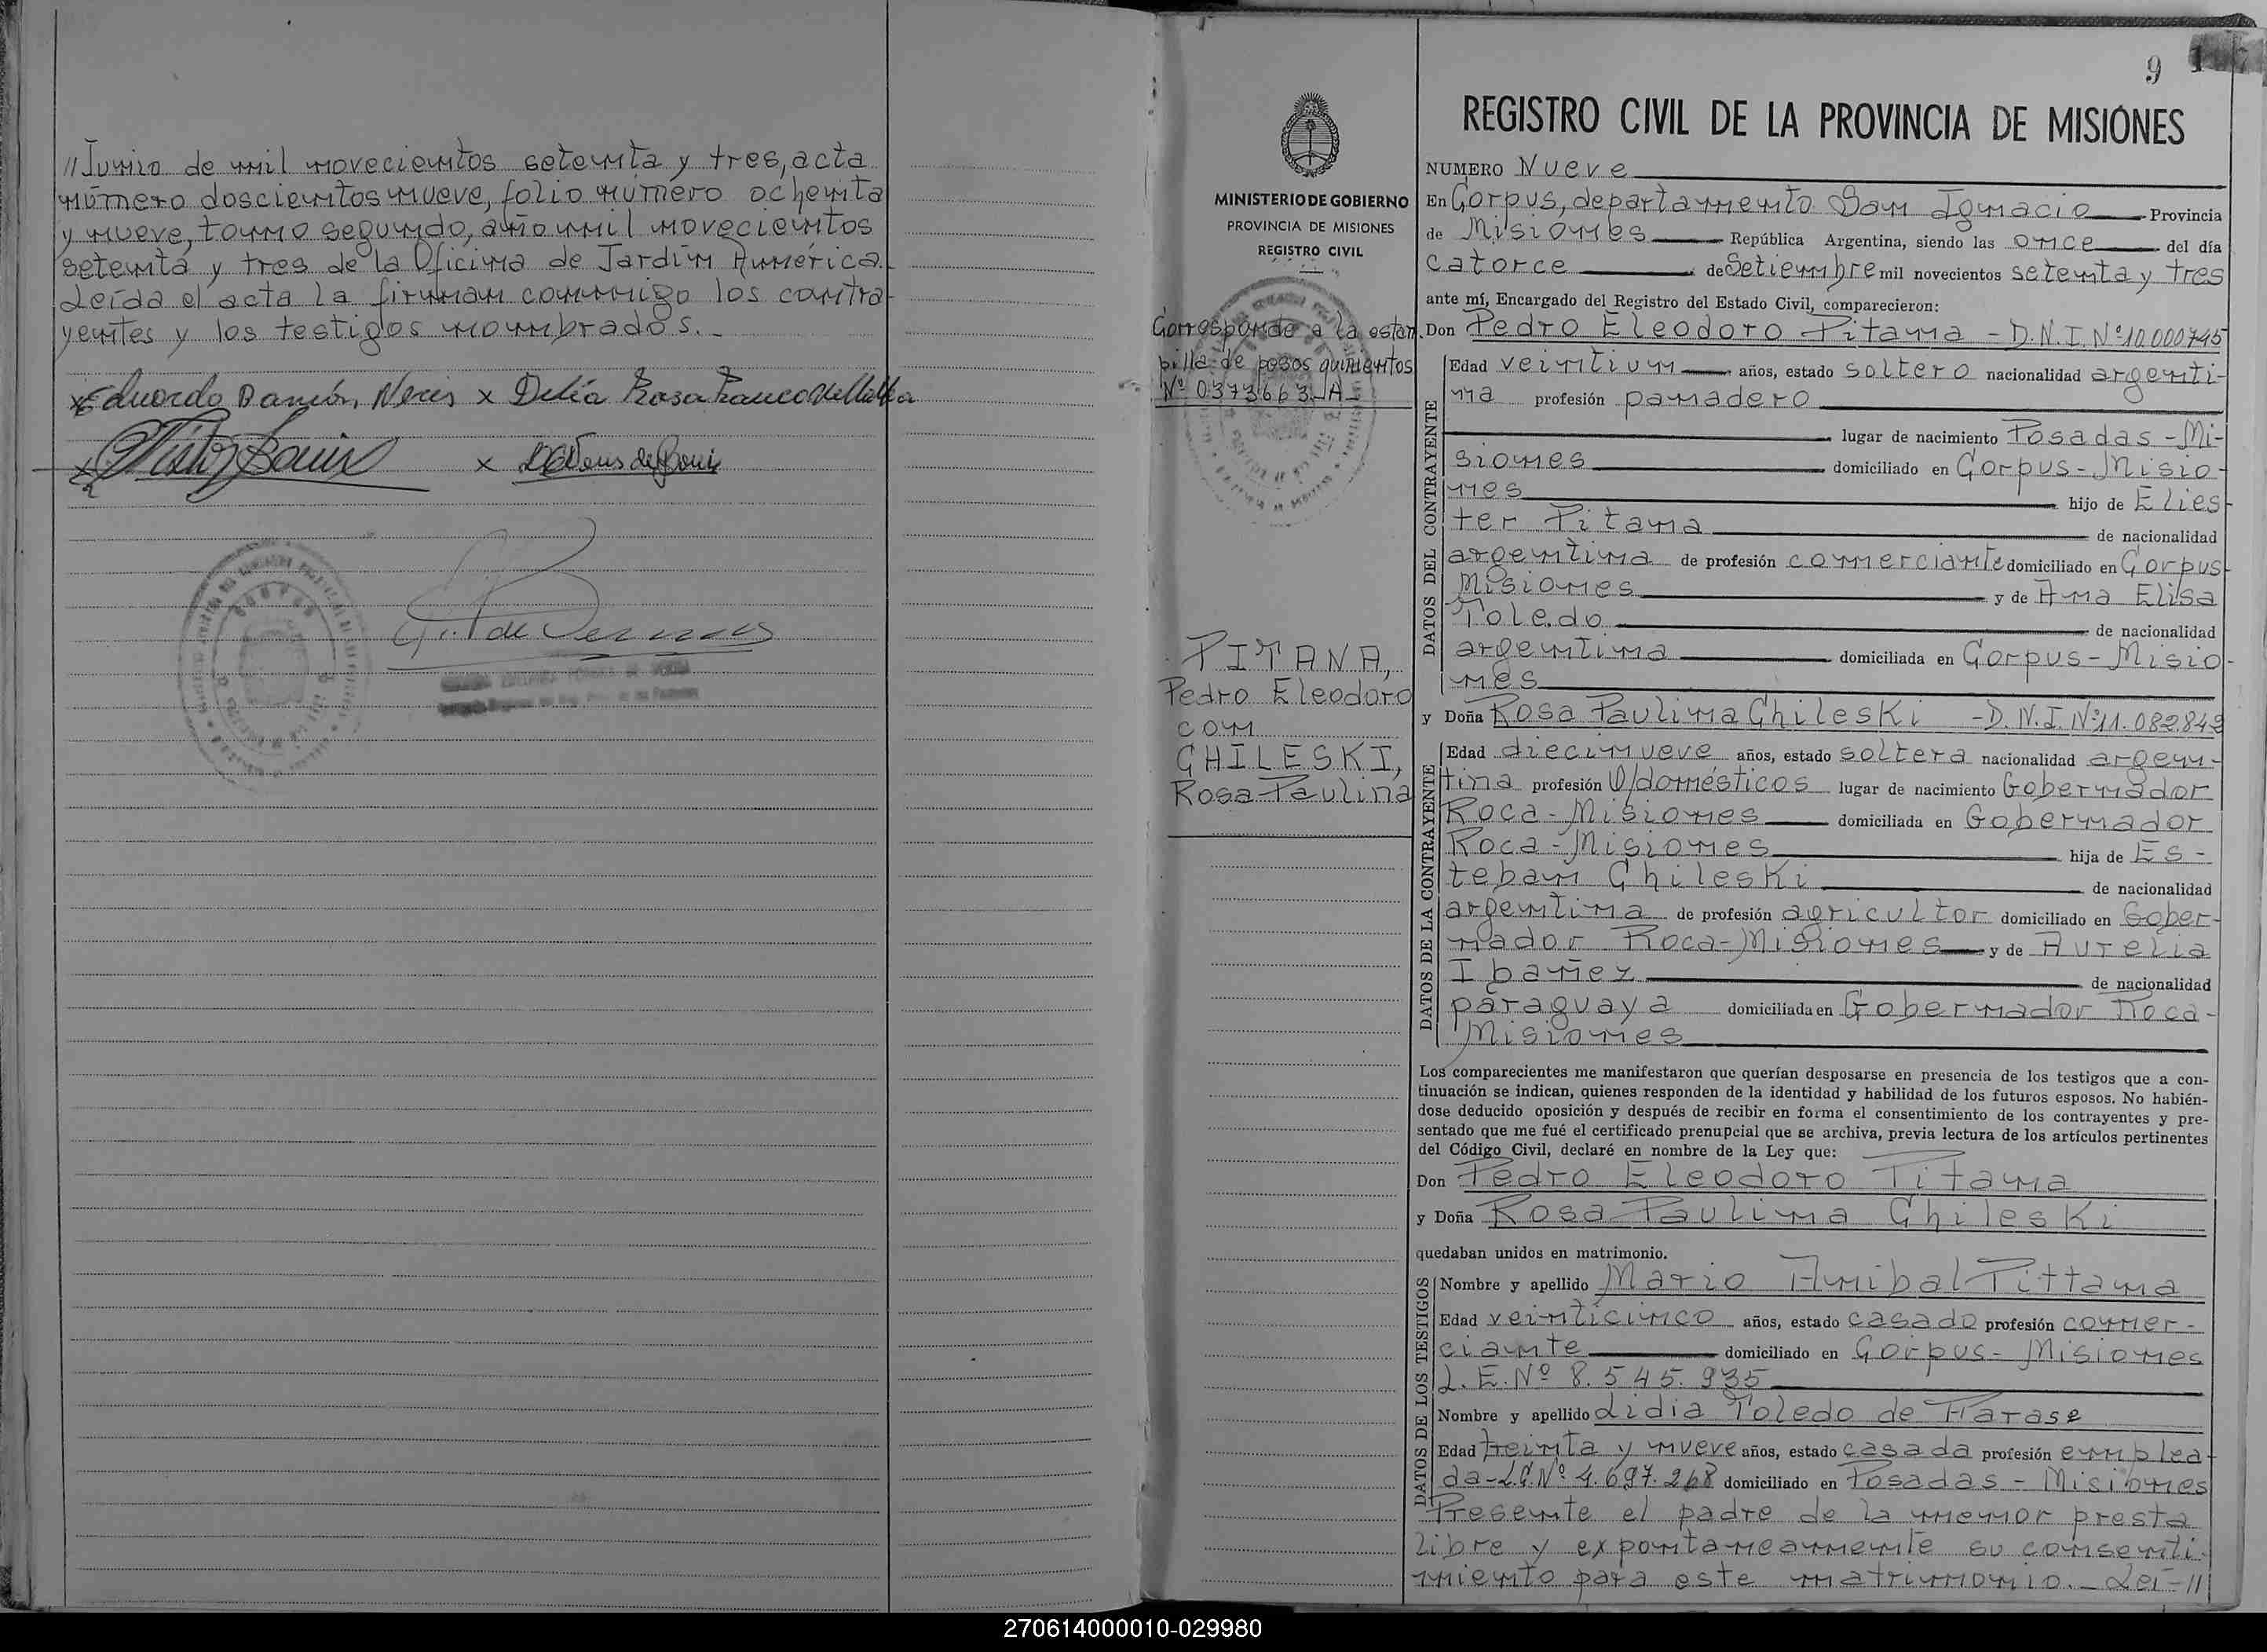 //Junio de mil novecientos setenta y tres, acta
número doscientos nueve, folio número ochenta
y nueve, tomo segundo, año mil novecientos
setenta y tres de la Oficina de Jardín América.
Leída el acta la firman conmigo los contra-
yentes y los testigos nombrados.-
x Eduardo Damón Neris x Delia Rosa Franco Villalba
x
x
9
REGISTRO CIVIL DE LA PROVINCIA DE MISIONES
MINISTERIO DE GOBIERNO
PROVINCIA DE MISIONES
REGISTRO CIVIL
Corresponde a la estam
pilla de pesos quinientos
Nº 0373663-A-
PITANA,
Pedro Eleodoro
con
CHILESKI,
Rosa Paulina
NUMERO Nueve
En Corpus, departamento San Ignacio Provincia
de Misiones República Argentina, siendo las once del día
catorce de Setiembre mil novecientos setenta y tres
ante mí, Encargado del Registro del Estado Civil, comparecieron:
DATOS DEL CONTRAYENTE
Don Pedro Eleodoro Pitana - D.N.I. Nº 10.000745
Edad veintiun años, estado soltero nacionalidad argenti-
na profesión panadero
lugar de nacimiento Posadas - Mi-
siones domiciliado en Corpus - Misio-
nes hijo de Elies-
ter Pitana de nacionalidad
argentina de profesión comerciante domiciliado en Corpus-
Misiones y de Ana Elisa
Toledo de nacionalidad
argentina domiciliada en Corpus - Misio-
nes
y Doña Rosa Paulina Chileski - D.N.I. Nº 11.082.842
DATOS DE LA CONTRAYENTE
Edad diecinueve años, estado soltera nacionalidad argen-
tina profesión Q/domésticos lugar de nacimiento Gobernador
Roca - Misiones domiciliada en Gobernador
Roca - Misiones hija de Es-
teban Chileski de nacionalidad
argentina de profesión agricultor domiciliado en Gober-
nador Roca - Misiones y de Aurelia
Ibañez de nacionalidad
paraguaya domiciliada en Gobernador Roca-
Misiones
Los comparecientes me manifestaron que querían desposarse en presencia de los testigos que a con-
tinuación se indican, quienes responden de la identidad y habilidad de los futuros esposos. No habién-
dose deducido oposición y después de recibir en forma el consentimiento de los contrayentes y pre-
sentado que me fué el certificado prenupcial que se archiva, previa lectura de los artículos pertinentes
del Código Civil, declaré en nombre de la Ley que:
Don Pedro Eleodoro Pitana
y Doña Rosa Paulina Chileski
quedaban unidos en matrimonio.
DATOS DE LOS TESTIGOS
Nombre y apellido Mario Anibal Pittana
Edad veinticinco años, estado casado profesión comer-
ciante domiciliado en Corpus - Misiones
L.E. Nº 8.545.935
Nombre y apellido Lidia Toledo de Harase
Edad treinta y nueve años, estado casada profesión emplea-
da - L.C. Nº 4.697.268 domiciliado en Posadas - Misiones
Presente el padre de la menor presta
libre y expontaneamente su consenti-
miento para este matrimonio.- Leí-//
270614000010-029980